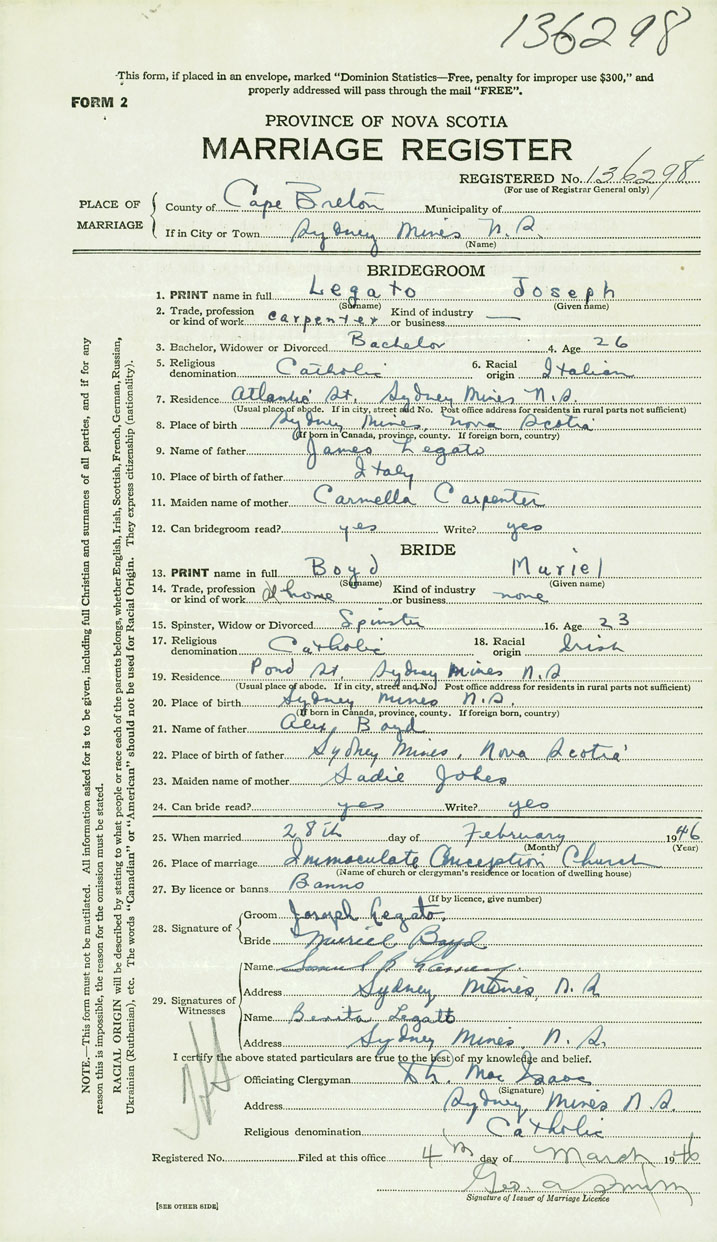 136298
This form, if placed in an envelope, marked "Dominion Statistics—Free, penalty for improper use $300," and
properly addressed will pass through the mail "FREE".
FORM 2
PROVINCE OF NOVA SCOTIA
MARRIAGE REGISTER
REGISTERED No. 136298
(For use of Registrar General only)
PLACE OF MARRIAGE
County of Cape Breton Municipality of
If in City or Town Sydney Mines N.S.
(Name)
BRIDEGROOM
1. PRINT name in full Legato Joseph
(Surname) (Given name)
2. Trade, profession or kind of work carpenter Kind of industry or business —
3. Bachelor, Widower or Divorced Bachelor 4. Age 26
5. Religious denomination Catholic 6. Racial origin Italian
7. Residence Atlantic St. Sydney Mines N.S.
(Usual place of abode. If in city, street and No. Post office address for residents in rural parts not sufficient)
8. Place of birth Sydney Mines, Nova Scotia
(If born in Canada, province, county. If foreign born, country)
9. Name of father James Legato
10. Place of birth of father Italy
11. Maiden name of mother Carmella Carpenter
12. Can bridegroom read? yes Write? yes
BRIDE
13. PRINT name in full Boyd Muriel
(Surname) (Given name)
14. Trade, profession or kind of work At home Kind of industry or business none
15. Spinster, Widow or Divorced Spinster 16. Age 23
17. Religious denomination Catholic 18. Racial origin Irish
19. Residence Pond St. Sydney Mines N.S.
(Usual place of abode. If in city, street and No. Post office address for residents in rural parts not sufficient)
20. Place of birth Sydney Mines N.S.
(If born in Canada, province, county. If foreign born, country)
21. Name of father Alex Boyd
22. Place of birth of father Sydney Mines, Nova Scotia
23. Maiden name of mother Sadie
24. Can bride read? yes Write? yes
25. When married 28th day of February 1946
(Month) (Year)
26. Place of marriage Immaculate Conception Church
(Name of church or clergyman's residence or location of dwelling house)
27. By licence or banns Banns
(If by licence, give number)
28. Signature of
Groom Joseph Legato.
Bride Muriel Boyd
29. Signatures of Witnesses
Name
Address Sydney Mines, N.S.
Name Benita Legatto
Address Sydney Mines, N.S.
I certify the above stated particulars are true to the best of my knowledge and belief.
Officiating Clergyman Mac Isaac
(Signature)
Address Sydney Mines N.S.
Religious denomination Catholic
Registered No. Filed at this office 4th day of March 1946
Geo. A Smith
Signature of Issuer of Marriage Licence
[SEE OTHER SIDE]
NOTE.—This form must not be mutilated. All information asked for is to be given, including full Christian and surnames of all parties, and if for any
reason this is impossible, the reason for the omission must be stated.
RACIAL ORIGIN will be described by stating to what people or race each of the parents belongs, whether English, Irish, Scottish, French, German, Russian,
Ukrainian (Ruthenian), etc. The words "Canadian" or "American" should not be used for Racial Origin. They express citizenship (nationality).